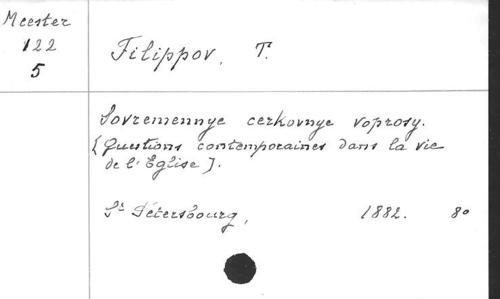 Meester
122
5
Filippov, T.
Sovremennye cerkovnye voprosy.
[Questions contemporaines dans la vie
de l'Eglise].
St Pétersbourg, 1882. 8°